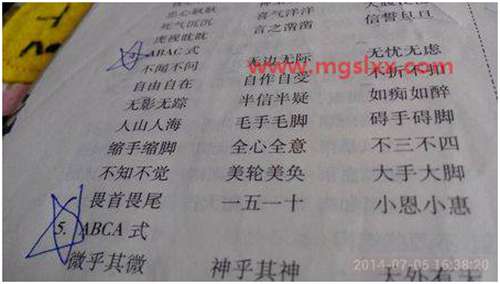 死气沉沉 喜气洋洋
虎视眈眈 言之凿凿 信誓旦旦
ABAC 式
不闻不问 无边无际 无忧无虑
www.mgslxx.com
自由自在 自作自受 不折不扣
无影无踪 半信半疑 如痴如醉
人山人海 毛手毛脚 碍手碍脚
缩手缩脚 全心全意 不三不四
不知不觉 美轮美奂 大手大脚
畏首畏尾 一五一十 小恩小惠
5. ABCA 式
微乎其微 神乎其神 天外有天
2014-07-05 16:38:20